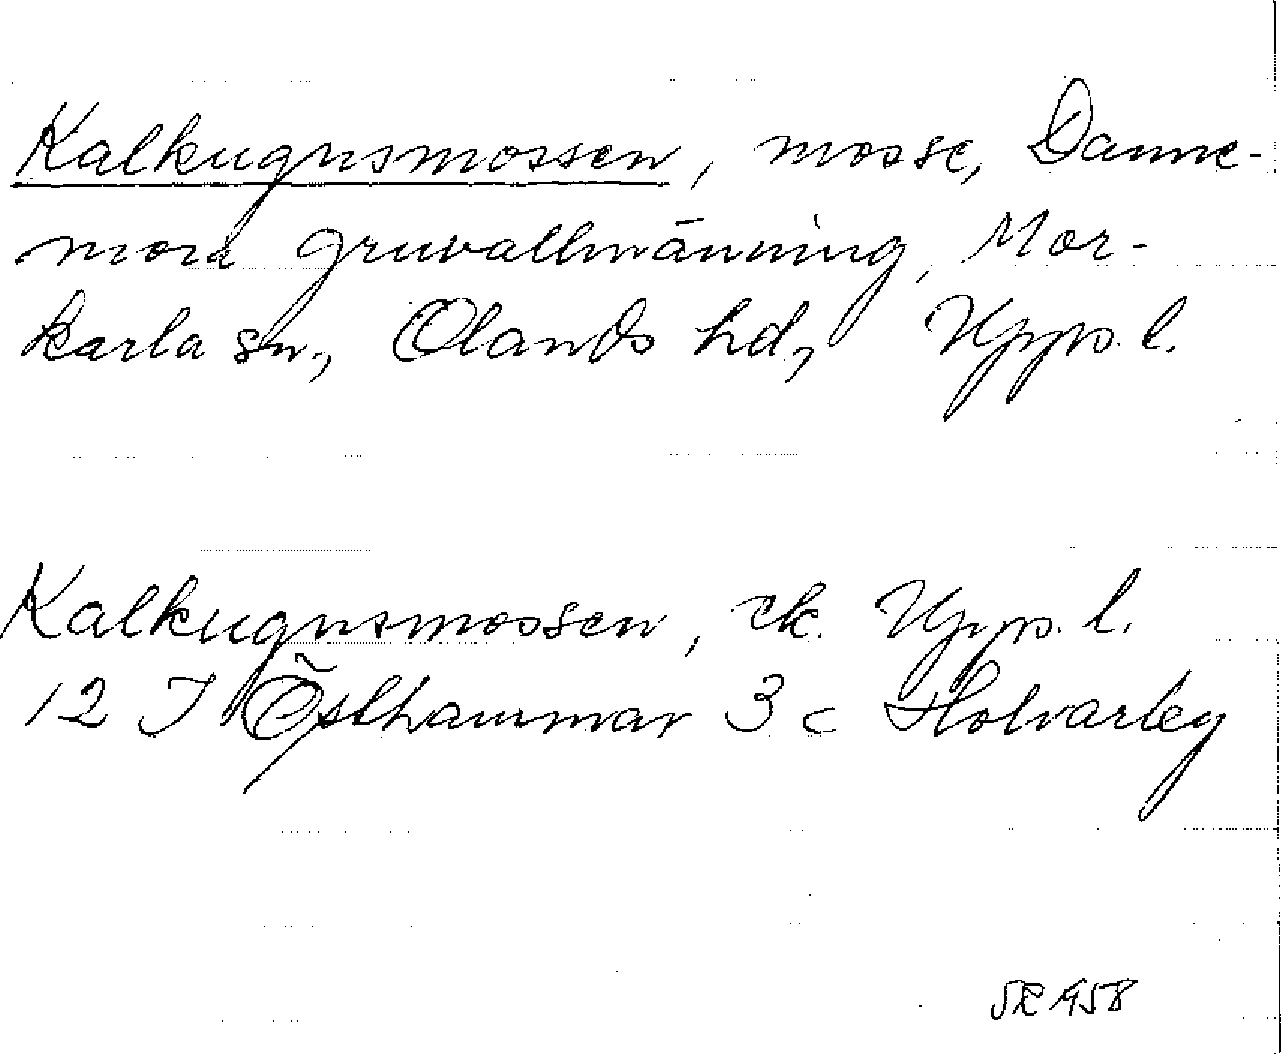 Kalkugnsmossen, mosse, Danne-
mora gruvallmänning, Mor-
karla sn., Olands hd, Upps. l.
Kalkugnsmossen, ek. Upps. l.
12 I Östhammar 3 c Holvarby
1958